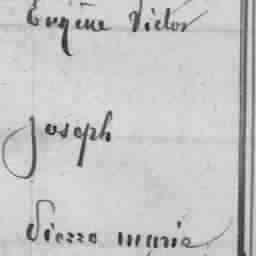 Eugène Victor
Joseph
Pierre marie